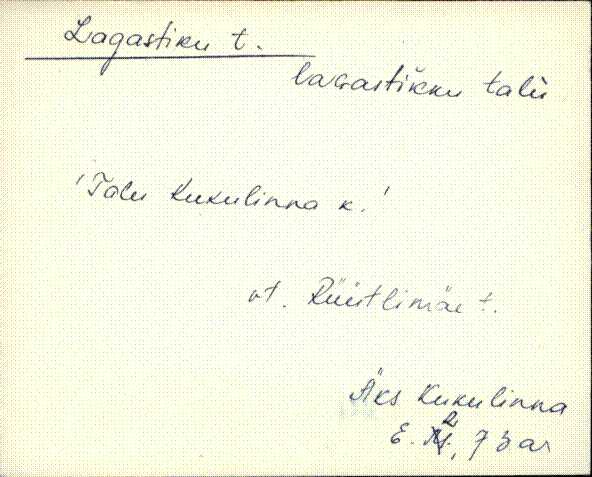 Lagastiku t.
lagastikku talu
'Talu Kukulinna k.'
vt. Rüütlimäe t.
Äks Kukulinna
E.